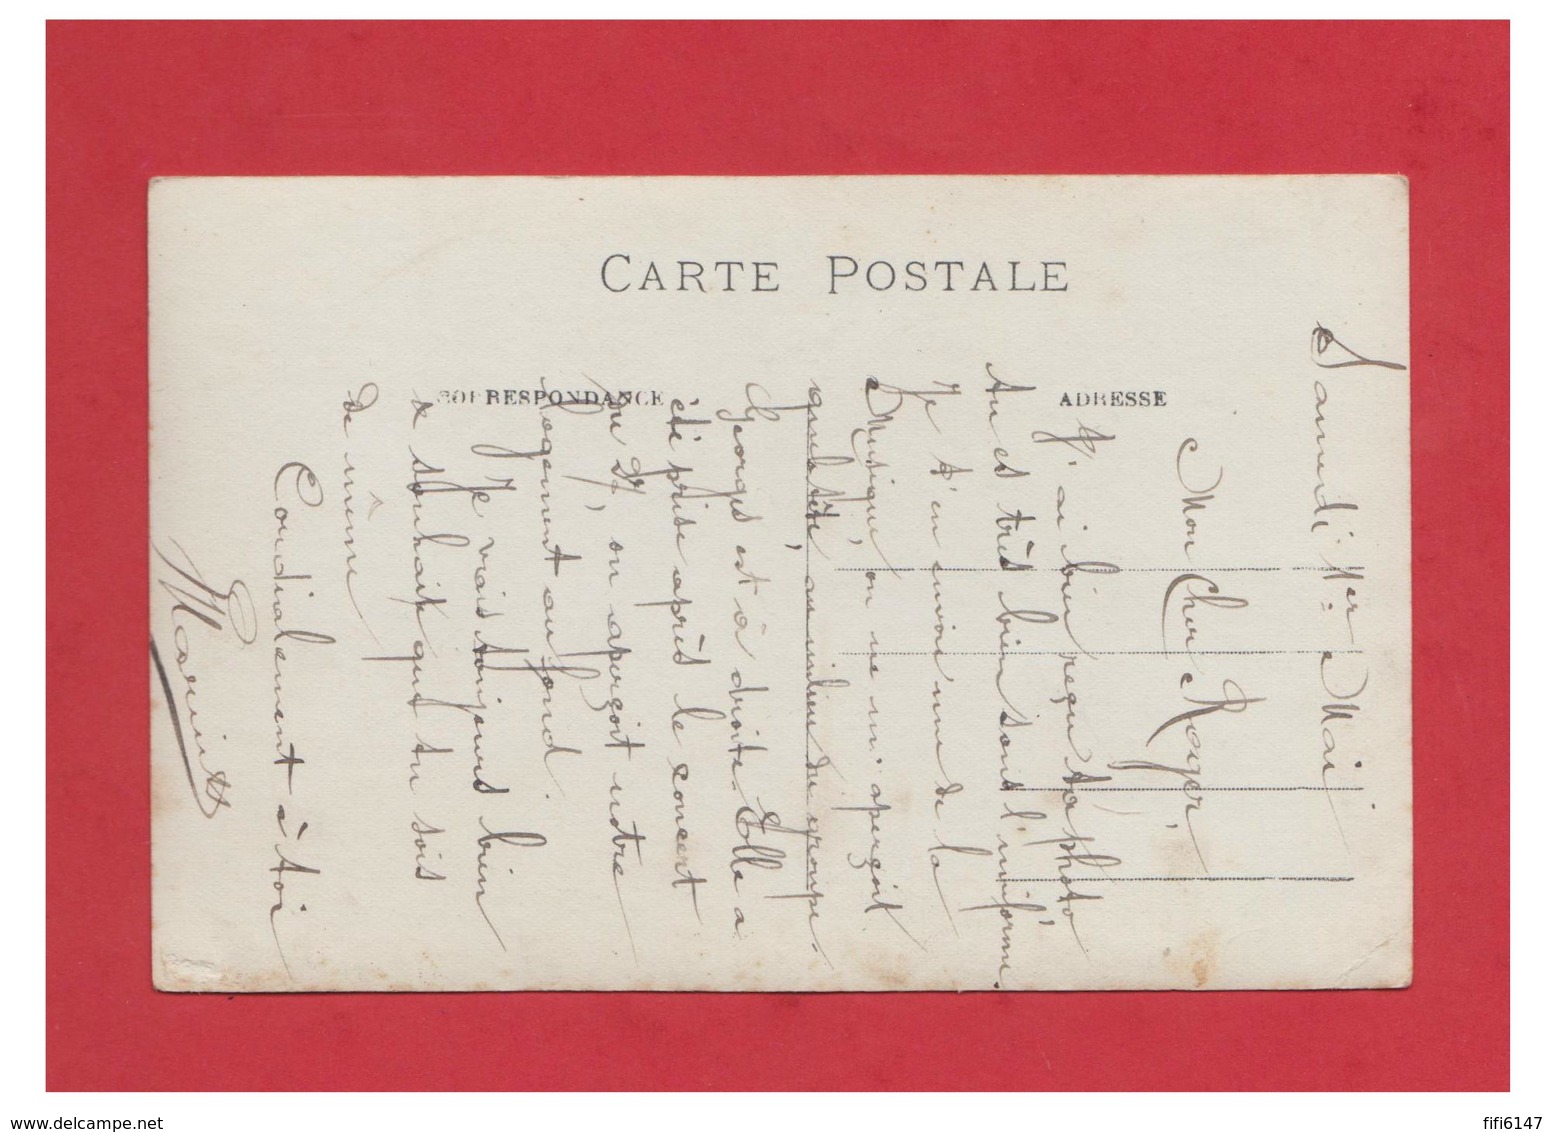 CARTE POSTALE
CORRESPONDANCE
ADRESSE
Samedi 1er Mai
Mon Cher Roger,
J'ai bien reçu ta photo
tu es très bien sous l'uniforme.
Je t'en envoie une de la
Musique, on ne m'aperçoit
au milieu du groupe.
Georges est à droite. Elle a
été prise après le concert
du 27, on aperçoit notre
logement au fond.
Je vais toujours bien
& souhaite que tu sois
de même
Cordialement à toi
delcampe.net
fifi6147